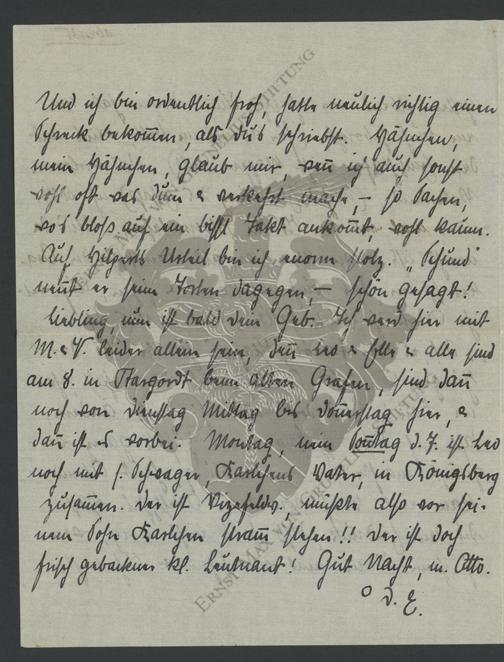 Und ich bin ordentlich froh, hatte neulich richtig einen
Schreck bekommen, als du's schriebst. Hähnchen,
mein Hähnchen, glaub mir, wenn ich auch sonst
wohl oft was dumm & verkehrt mache, – so Sachen,
wo's bloss auf ein bissl Takt ankommt, wohl kaum.
Auf Hilperts Urteil bin ich enorm stolz. „Schund"
nennt er sein dagegen, – schön gesagt!
Liebling, nun ist bald dein Geb. Ich werd hier mit
M. & V. leider allein sein, denn Leo & & alle sind
am 8. in beim alten Grafen, sind dann
noch von Dienstag Mittag bis Donnerstag hier, &
dann ist es vorbei. Montag, nein Sonntag d. 7. ist Leo
noch mit s. Schwager, Karlchens Vater, in Königsberg
zusammen. Der ist Vizefeldw. müsste also vor sei-
nem Sohn Karlchen stramm stehen!! Der ist doch
frisch gebackner kl. Leutnant! Gut Nacht, m. Otto.
d. E.
ERNST MAX VON GRU STIFTUNG